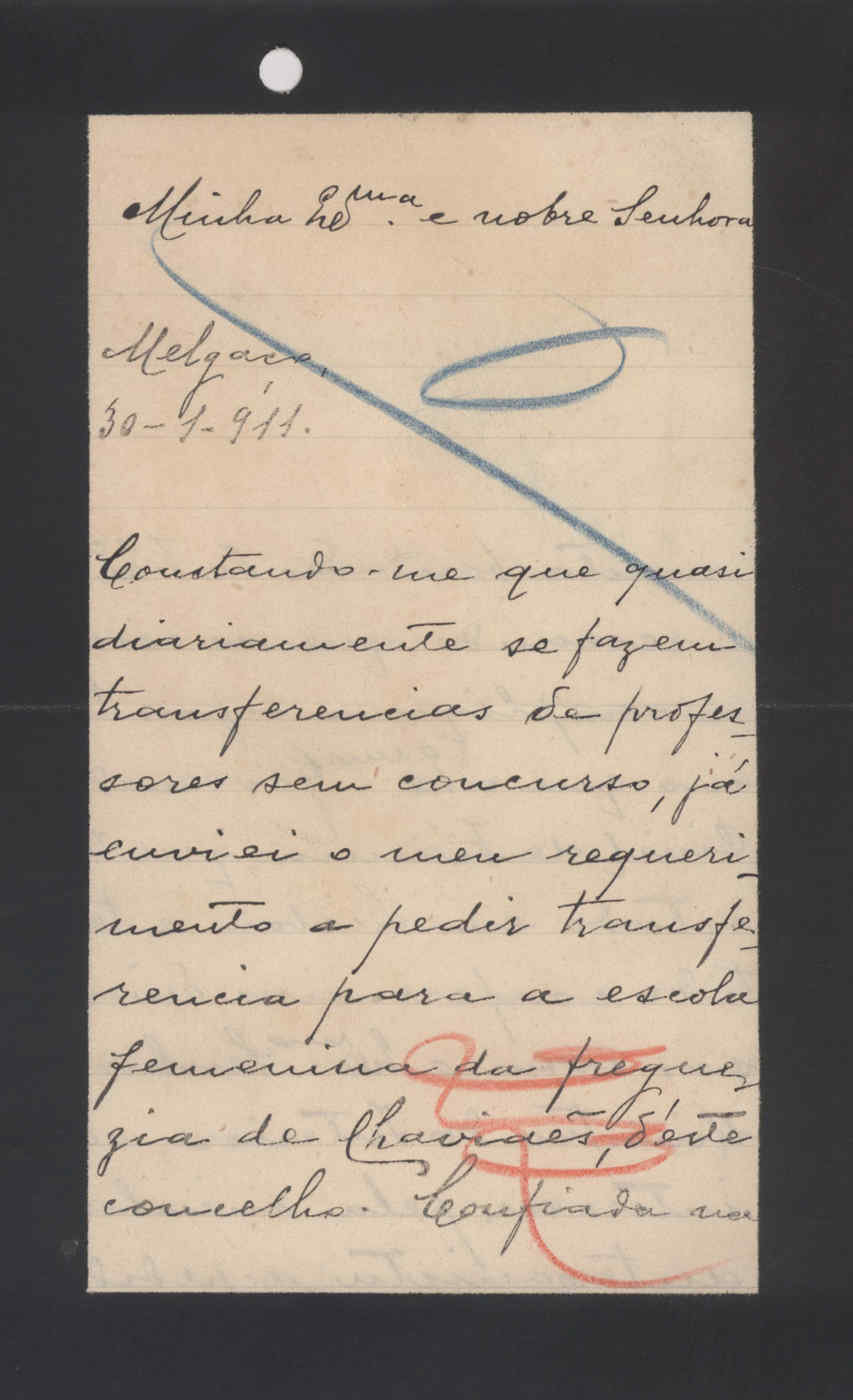 Minha Exma. e nobre Senhora
Melgaço,
30-1-911.
Constando-me que quasi
diariamente se fazem
transferencias de profes-
sores sem concurso, já
enviei o meu requeri-
mento a pedir transfe-
rencia para a escola
femenina da fregue-
zia de Chaviães, d'éste
concelho. Confiada na